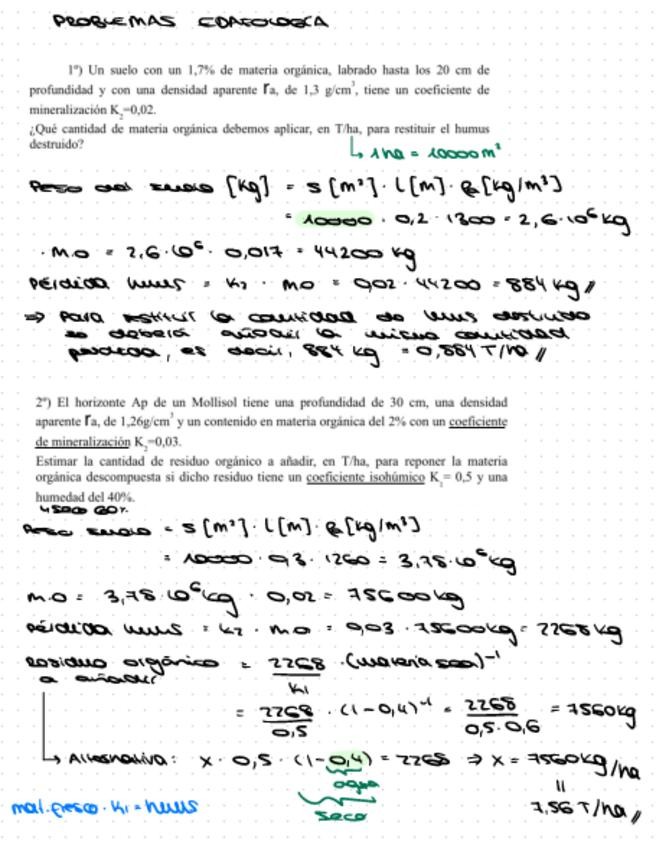 PROBLEMAS EDAFOLOGÍA
1º) Un suelo con un 1,7% de materia orgánica, labrado hasta los 20 cm de
profundidad y con una densidad aparente ra, de 1,3 g/cm³, tiene un coeficiente de
mineralización K₂=0,02.
¿Qué cantidad de materia orgánica debemos aplicar, en T/ha, para restituir el humus
destruido?
↳ 1 ha = 10000 m²
Peso del suelo [kg] = S [m²] · L [m] · ρa [kg/m³]
= 10000 · 0,2 · 1300 = 2,6·10⁶ kg
· M.O = 2,6·10⁶ · 0,017 = 44200 kg
Pérdida humus = K₂ · MO = 0,02 · 44200 = 884 kg //
⇒ Para restituir la cantidad de humus destruido
se deberá añadir la misma cantidad
perdida, es decir, 884 kg = 0,884 T/ha //
2º) El horizonte Ap de un Mollisol tiene una profundidad de 30 cm, una densidad
aparente ra, de 1,26g/cm³ y un contenido en materia orgánica del 2% con un coeficiente
de mineralización K₂=0,03.
Estimar la cantidad de residuo orgánico a añadir, en T/ha, para reponer la materia
orgánica descompuesta si dicho residuo tiene un coeficiente isohúmico K₁= 0,5 y una
humedad del 40%.
↳ seco 60%
Peso suelo = S [m²] · L [m] · ρa [kg/m³]
= 10000 · 0,3 · 1260 = 3,78·10⁶ kg
M.O = 3,78·10⁶ kg · 0,02 = 75600 kg
Pérdida humus = K₂ · MO = 0,03 · 75600 kg = 2268 kg
Residuo orgánico a añadir = 2268/K₁ · (materia seca)⁻¹
= 2268/0,5 · (1-0,4)⁻¹ = 2268/0,5·0,6 = 7560 kg
↳ Alternativa: x · 0,5 · (1-0,4) = 2268 ⇒ x = 7560 kg/ha
agua
seco
mat. fresco · K₁ = humus
= 7,56 T/ha //